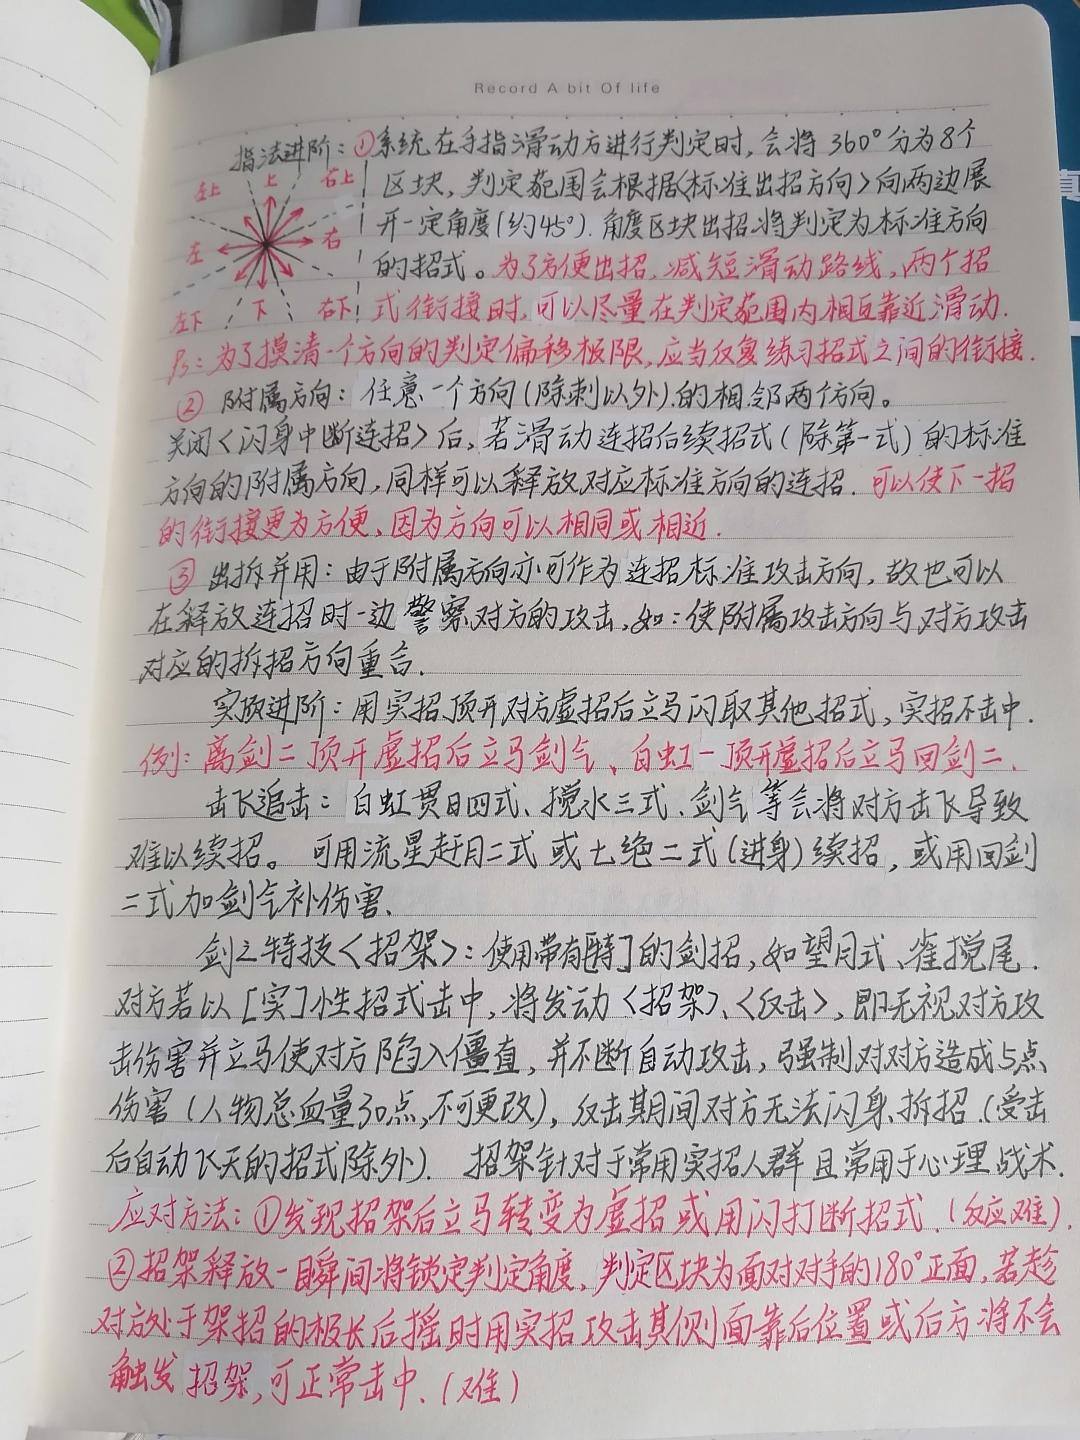 Record A bit Of life
指法进阶：①系统在手指滑动方进行判定时，会将360°分为8个
左上 上 右上
区块，判定范围会根据<标准出招方向>向两边展
左 右
开一定角度(约45°).角度区块出招将判定为标准方向
的招式。为了方便出招,减短滑动路线,两个招
左下 下 右下
式衔接时,可以尽量在判定范围内相互靠近滑动.
Ps:为了摸清一个方向的判定偏移极限,应当反复练习招式之间的衔接.
② 附属方向：任意一个方向(除刺以外)的相邻两个方向。
关闭<闪身中断连招>后,若滑动连招后续招式(除第一式)的标准
方向的附属方向,同样可以释放对应标准方向的连招.可以使下一招
的衔接更为方便,因为方向可以相同或相近.
③ 出拆并用：由于附属方向亦可作为连招标准攻击方向,故也可以
在释放连招时一边警察对方的攻击,如：使附属攻击方向与对方攻击
对应的拆招方向重合.
实顶进阶：用实招顶开对方虚招后立马闪取其他招式,实招不击中.
例：离剑二顶开虚招后立马剑气、白虹一顶开虚招后立马回剑二.
击飞追击：白虹贯日四式、搅水三式、剑气等会将对方击飞导致
难以续招。可用流星赶月二式或七绝二式(进身)续招,或用回剑
二式加剑气补伤害.
剑之特技<招架>：使用带有[特]的剑招,如望月式、雀搅尾.
对方若以[实]性招式击中,将发动<招架>、<反击>,即无视对方攻
击伤害并立马使对方陷入僵直,并不断自动攻击,强制对对方造成5点
伤害(人物总血量30点,不可更改),反击期间对方无法闪身、拆招.(受击
后自动飞天的招式除外). 招架针对于常用实招人群且常用于心理战术.
应对方法：①发现招架后立马转变为虚招或用闪打断招式.(反应难).
②招架释放一瞬间将锁定判定角度,判定区块为面对对手的180°正面,若趁
对方处于架招的极长后摇时用实招攻击其侧面靠后位置或后方将不会
触发招架,可正常击中.(难)